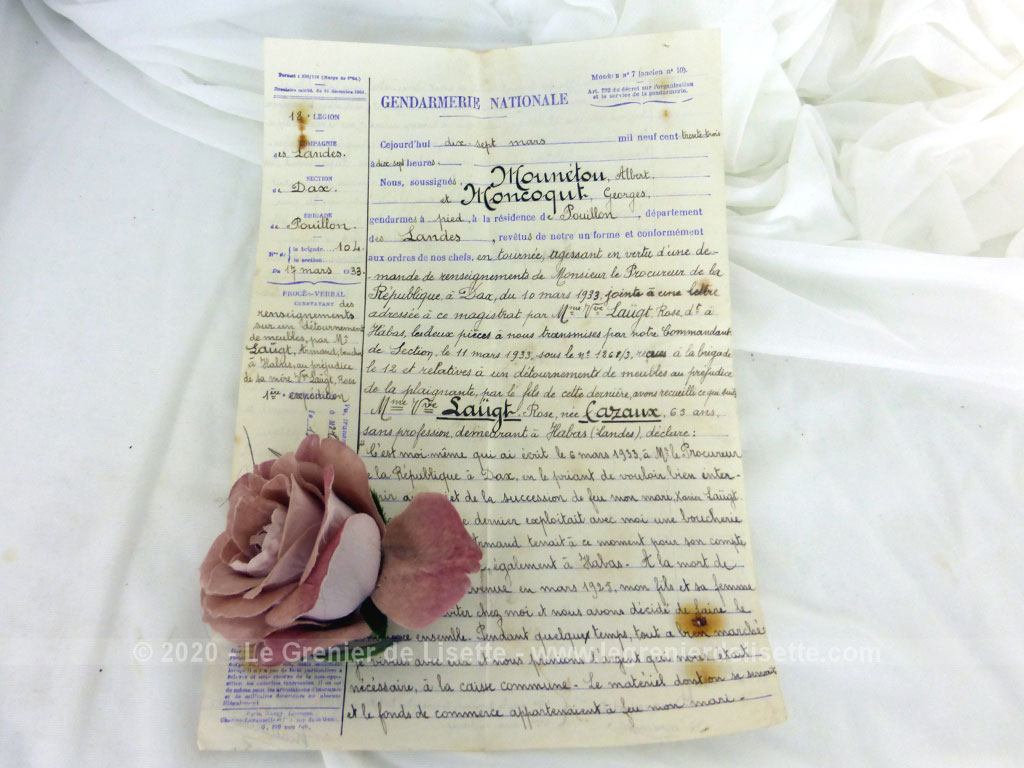 Format : 210/310 (Marge de 0m04.)
18e LÉGION
COMPAGNIE
des Landes.
SECTION
de Dax.
BRIGADE
de Pouillon.
Nos de la brigade 104
la section
Du 17 mars 1933.
PROCÈS-VERBAL
CONSTATANT des
renseignements
sur un détournement
de meubles, par Mr
Laügt, Armand, boucher
à Habas, au préjudice
de sa mère Vve Laügt, Rose
1ère expédition
GENDARMERIE NATIONALE
MODÈLE N° 7 (ancien n° 10).
Art. 292 du décret sur l'organisation
et le service de la gendarmerie.
Cejourd'hui dix-sept mars mil neuf cent trente trois
à dix sept heures
Nous, soussignés, Mounétou, Albert,
et Moncoqut, Georges,
gendarmes à pied, à la résidence de Pouillon, département
des Landes, revêtus de notre uniforme et conformément
aux ordres de nos chefs, en tournée, agissant en vertu d'une de-
mande de renseignements de Monsieur le Procureur de la
République à Dax, du 10 mars 1933, jointe à une lettre
adressée à ce magistrat par Mme Vve Laügt, Rose, dt à
Habas, les deux pièces à nous transmises par notre Commandant
de Section, le 11 mars 1933, sous le n° 1268/3, reçues à la brigade
le 12 et relatives à un détournements de meubles au préjudice
de la plaignante, par le fils de cette dernière, avons recueilli ce qui suit:
Mme Vve Laügt, Rose, née Cazaux, 63 ans,
sans profession, demeurant à Habas (Landes), déclare :
"C'est moi même qui ai écrit le 6 mars 1933, à Mr le Procureur
de la République à Dax, en le priant de vouloir bien inter-
venir au sujet de la succession de feu mon mare, Xavier Laügt.
Ce dernier exploitait avec moi une boucherie
Armaud tenait à ce moment pour son compte
, également à Habas. A la mort de
venue en mars 1925, mon fils et sa femme
chez moi et nous avons décidé de faire le
commerce ensemble. Pendant quelques temps, tout a bien marché
avec eux et nous prenions l'argent qui nous était
nécessaire, à la caisse commune. Le matériel dont on se servait
et le fonds de commerce appartenaient à feu mon mari -
© 2020 - Le Grenier de Lisette - www.legrenierdelisette.com